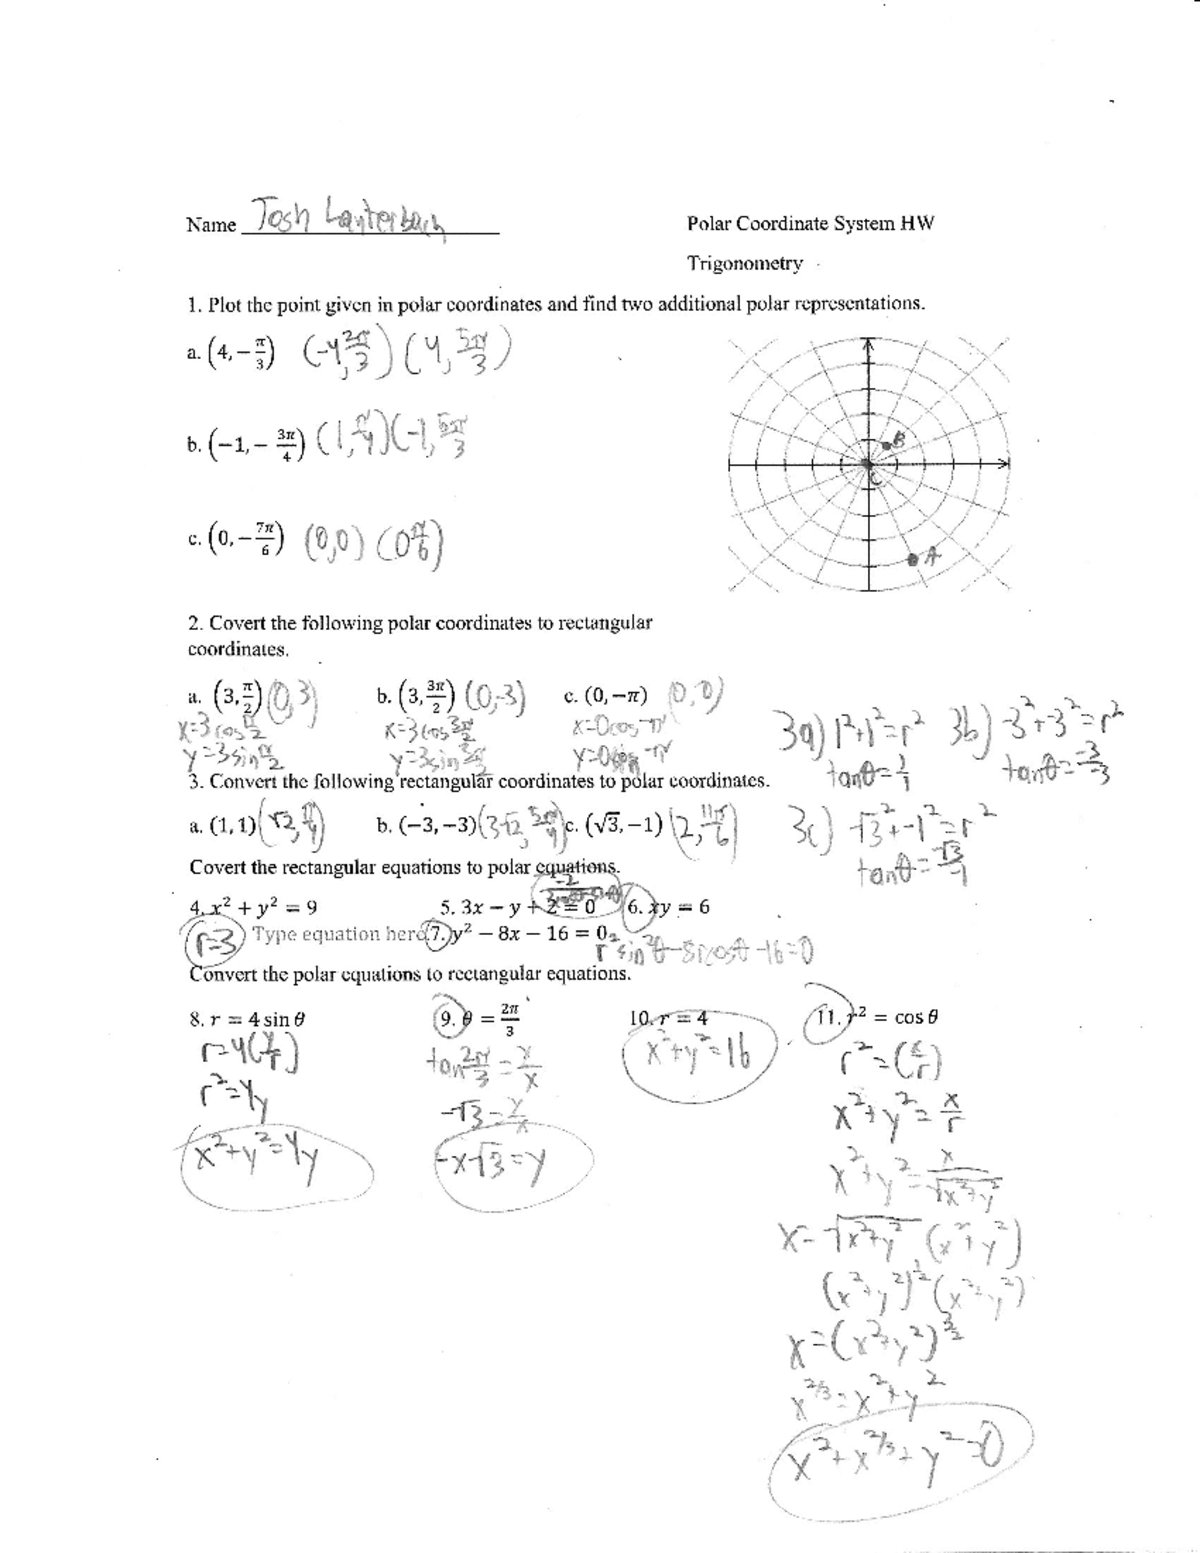 Name Josh Lauterbach
Polar Coordinate System HW
Trigonometry
1. Plot the point given in polar coordinates and find two additional polar representations.
a. (4, −π/3) (-4, 2π/3) (4, 5π/3)
b. (−1, − 3π/4) (1, π/4) (-1, 5π/3)
c. (0, − 7π/6) (0,0) (0 π/6)
B
C
A
2. Covert the following polar coordinates to rectangular
coordinates.
a. (3, π/2) (0,3) b. (3, 3π/2) (0,-3) c. (0, −π) (0,0)
x=3cos π/2 x=3cos 3π/2 x=0cos -π
y=3sin π/2 y=3sin 3π/2 y=0sin -π
3a) 1²+1²=r² 3b) -3²+-3²=r²
tanθ=1/1 tanθ=-3/-3
3. Convert the following rectangular coordinates to polar coordinates.
a. (1, 1) (√2, π/4) b. (−3, −3) (3√2, 5π/4) c. (√3, −1) (2, 11π/6)
3c) √3²+-1²=r²
tanθ=√3/-1
Covert the rectangular equations to polar equations.
4. x² + y² = 9 5. 3x − y + 2 = 0 6. xy = 6
r=3 Type equation here. 7. y² − 8x − 16 = 0 r²sin²θ-8rcosθ-16=0
Convert the polar equations to rectangular equations.
8. r = 4 sin θ 9. θ = 2π/3 10. r = 4 11. r² = cos θ
r=4(y/r) tan 2π/3 = y/x x²+y²=16 r²=(x/r)
r²=4y -√3=y/x x²+y²=x/r
x²+y²=4y -x√3=y x²+y²=x/√x²+y²
x=√x²+y² (x²+y²)
(x²+y²)^1/2 (x²+y²)
x=(x²+y²)^3/2
x^2/3=x²+y²
x²+x^2/3+y²=0